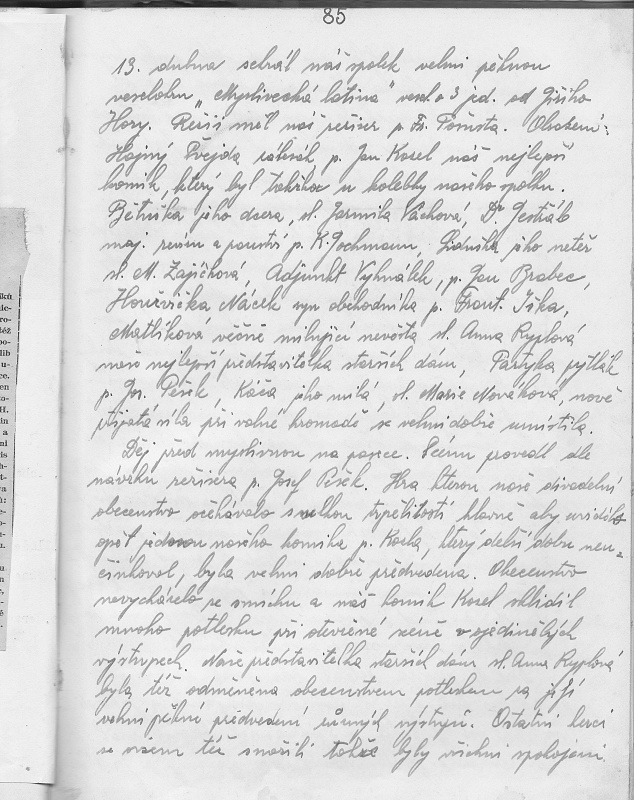 85
13. dubna sehrál náš spolek velmi pěknou
veselohru „Myslivecká latina" vesel. o 3 jed. od Jiřího
Hory. Režii měl náš režiser p. Fr. Obsazení:
Hajný Svejda p. Jan Kosel náš nejlepší
komik, který byl takřka u kolebky našeho spolku.
Bětuška jeho dcera, sl. Jarmila Váchová, Dr. Ještřáb
maj. revíru a panství p. K. Gochmann, Liduška jeho neteř
sl. M. Zajíčková, Adjunkt Vyhnálek, p. Jan Brabec,
Houžvička Nácek syn obchodníka p. Frant. Jška,
Matlíková věčně milující nevěsta sl. Anna Ryplová
naše nejlepší představitelka starších dám, Partyka pytlák
p. Jos. Pešek, Káča jeho milá, sl. Marie Nováková, nově
přijatá síla při valné hromadě se velmi dobře umístila.
Děj před myslivnou na pasece. Scénu provedl dle
návrhu režisera p. Josef Pešek. Hra kterou naše divadelní
obecenstvo očekávalo s velkou trpělitostí hlavně aby uvidělo
opět jednou našeho komika p. Kosla, který delší dobu neu-
činkoval, byla velmi dobře předvedena. Obecenstvo
nevycházelo ze smíchu a náš komik Kosel sklidil
mnoho potlesku při otevřené scéně v ojedinělých
výstupech. Naše představitelka starších dám sl. Anna Ryplová
byla též odměněna obecenstvem potleskem za její
velmi pěkné předvedení různých výstupů. Ostatní herci
se ovšem též snažili takže byly všichni spokojeni.